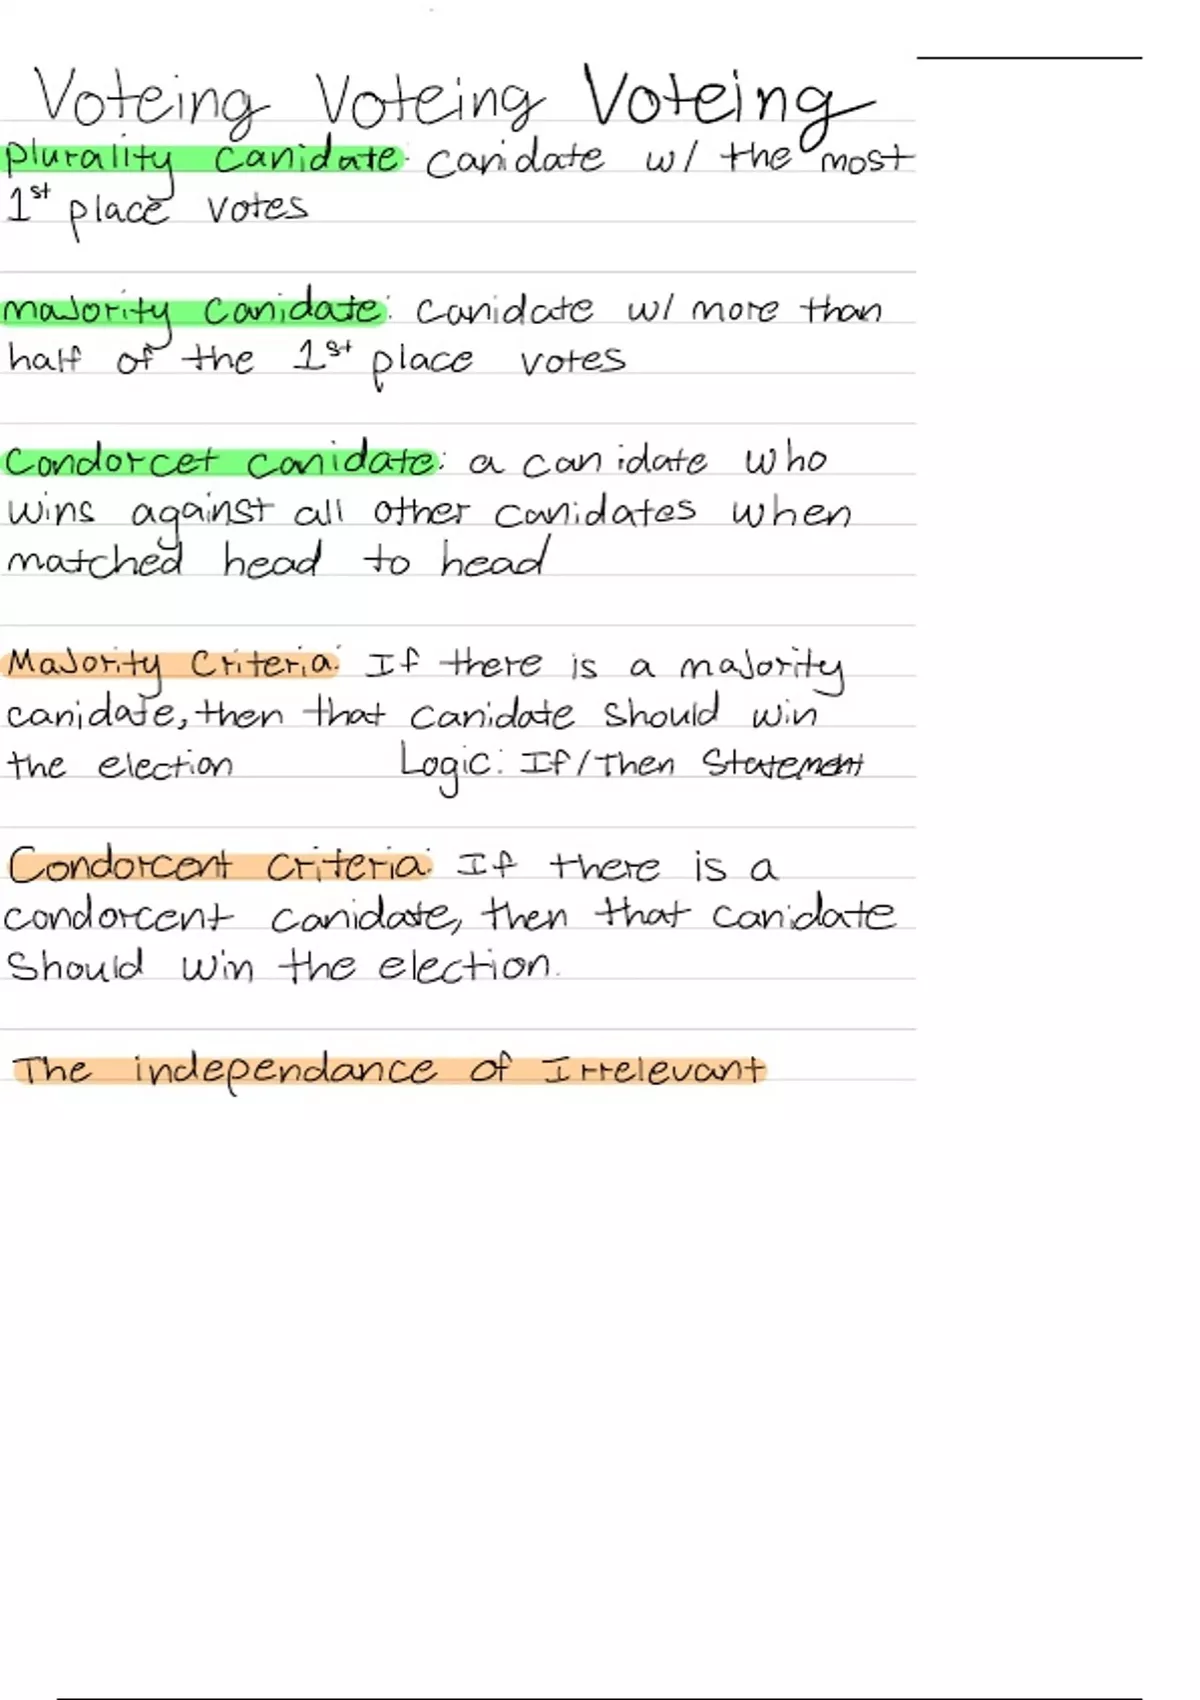 Voteing Voteing Voteing
plurality canidate: canidate w/ the most
1st place votes
majority canidate: canidate w/ more than
half of the 1st place votes
Condorcet canidate: a canidate who
wins against all other canidates when
matched head to head
Majority Criteria: If there is a majority
canidate, then that canidate should win
the election Logic: If/Then Statement
Condorcent criteria: If there is a
condorcent canidate, then that canidate
Should win the election.
The independance of Irrelevant